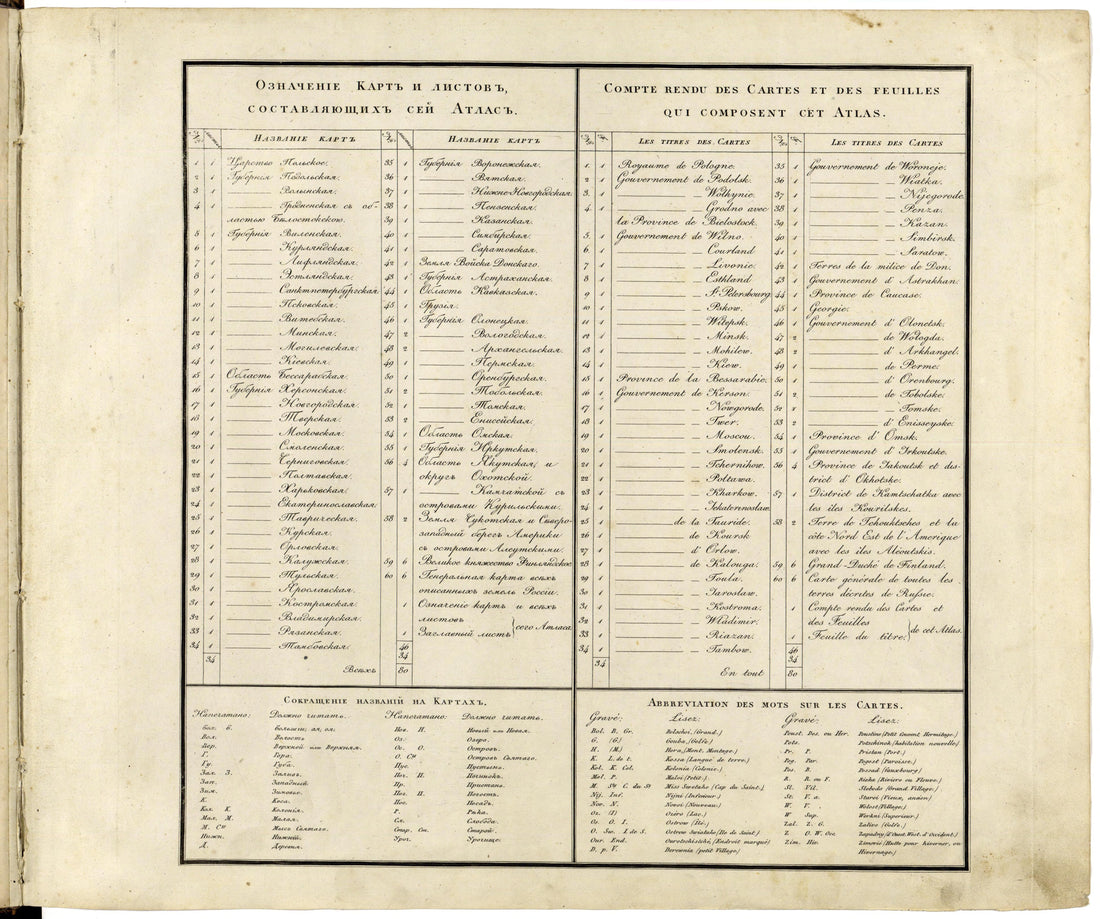 ОЗНАЧЕНІЕ КАРТЪ И ЛИСТОВЪ,
СОСТАВЛЯЮЩИХЪ СЕЙ АТЛАСЪ.
НАЗВАНІЕ КАРТЪ
1 1 Царство Польское.
2 1 Губернія Подольская.
3 1 Волынская.
4 1 Гродненская съ об-
ластью Бѣлостокскою.
5 1 Губернія Виленская.
6 1 Курляндская.
7 1 Лифляндская.
8 1 Эстляндская.
9 1 Санктпетербургская.
10 1 Псковская.
11 1 Витебская.
12 1 Минская.
13 1 Могилевская.
14 1 Кіевская.
15 1 Область Бессарабская.
16 1 Губернія Херсонская.
17 1 Новгородская.
18 1 Тверская.
19 1 Московская.
20 1 Смоленская.
21 1 Черниговская.
22 1 Полтавская.
23 1 Харьковская.
24 1 Екатеринославская.
25 1 Таврическая.
26 1 Курская.
27 1 Орловская.
28 1 Калужская.
29 1 Тульская.
30 1 Ярославская.
31 1 Костромская.
32 1 Владимирская.
33 1 Рязанская.
34 1 Тамбовская.
34
НАЗВАНІЕ КАРТЪ
35 1 Губернія Воронежская.
36 1 Вятская.
37 1 Нижне-Новгородская.
38 1 Пензенская.
39 1 Казанская.
40 1 Симбирская.
41 1 Саратовская.
42 1 Земля Войска Донскаго.
43 1 Губернія Астраханская.
44 1 Область Кавказская.
45 1 Грузія.
46 1 Губернія Олонецкая.
47 2 Вологодская.
48 2 Архангельская.
49 1 Пермская.
50 1 Оренбургская.
51 2 Тобольская.
52 1 Томская.
53 2 Енисейская.
54 1 Область Омская.
55 1 Губернія Иркутская.
56 4 Область Якутская, и
округъ Охотской.
57 1 Камчатской съ
островами Курильскими.
58 2 Земля Чукотская и Сѣверо-
западный берегъ Америки
съ островами Алеутскими.
59 6 Великое княжество Финляндское.
60 6 Генеральная карта всѣхъ
описанныхъ земель Россіи.
1 Означеніе картъ и всѣхъ
листовъ
1 Заглавный листъ
сего Атласа
46
34
Всѣхъ 80
COMPTE RENDU DES CARTES ET DES FEUILLES
QUI COMPOSENT CET ATLAS.
LES TITRES DES CARTES
1. 1 Royaume de Pologne.
2 1 Gouvernement de Podolsk.
3. 1 Wolhynie.
4. 1 Grodno avec
la Province de Bielostock.
5. 1 Gouvernement de Wilno.
6 1 Courland
7 1 Livonie.
8 1 Esthland
9 1 St. Petersbourg
10 1 Pskow.
11 1 Witepsk.
12 1 Minsk.
13 1 Mohilew.
14 1 Kiew.
15 1 Province de la Bessarabie.
16 1 Gouvernement de Kerson.
17 1 Nowgorode.
18 1 Twer.
19 1 Moscou.
20 1 Smolensk.
21 1 Tchernihow.
22 1 Poltawa.
23 1 Kharkow.
24 1 Jekaterinoslaw.
25 1 de la Tauride.
26 1 de Koursk
27 1 d' Orlow.
28 1 de Kalouga.
29 1 Toula.
30 1 Jaroslaw.
31 1 Kostroma.
32 1 Wladimir.
33 1 Riazan.
34 1 Tambow.
34
LES TITRES DES CARTES
35 1 Gouvernement de Woroneje.
36 1 Wiatka.
37 1 Nijegorode.
38 1 Penza.
39 1 Kazan.
40 1 Simbirsk.
41 1 Saratow.
42 1 Terres de la milice de Don.
43 1 Gouvernement d' Astrakhan.
44 1 Province de Caucase.
45 1 Georgie.
46 1 Gouvernement d' Olonetsk.
47 2 de Wologda.
48 2 d' Arkhangel.
49 1 de Perme.
50 1 d' Orenbourg.
51 2 de Tobolske.
52 1 Tomske.
53 2 d' Enisseyske.
54 1 Province d' Omsk.
55 1 Gouvernement d' Irkoutske.
56 4 Province de Iakoutsk et dis-
trict d' Okhotske.
57 1 District de Kamtschatka avec
les iles Kourilskes.
58 2 Terre de Tchouktsches et la
côte Nord Est de l'Amerique
avec les iles Aleoutskis.
59 6 Grand-Duché de Finland.
60 6 Carte générale de toutes les
terres décrites de Russie.
1 Compte rendu des Cartes et
des Feuilles
1 Feuille du titre.
de cet Atlas.
46
34
En tout 80
СОКРАЩЕНІЕ НАЗВАНІЙ НА КАРТАХЪ.
Напечатано: Должно читать.
Бол. Б. Большія; ая, ой;
Вол. Волость
Вер. Верхней или Верхняя.
Г. Гора.
Гу. Губа.
Зал. З. Заливъ.
Зап. Западный.
Зим. Зимовье.
К. Коса.
Кол. К. Колонія.
Мал. М. Малая.
М. Сн Мысъ Святаго.
Нижн. Нижній.
Д. Деревня.
Напечатано: Должно читать.
Нов. Н. Новый или Новая.
Оз. Озеро.
Ос. О. Островъ.
О. Сн Островъ Святаго.
Пус. Пустынь.
Поч. П. Починокъ.
Пр. Пристань.
Пог. П. Погостъ.
Пос. Посадъ.
Р. Рѣка.
Сл. Слобода.
Стар. Ст. Старой.
Уроч. Урочище.
ABBREVIATION DES MOTS SUR LES CARTES.
Gravé: Lisez:
Bol. B. Gr. Bolschoi, (Grand.)
G. (G.) Gouba (Golfe.)
H. (M.) Hora, (Mont, Montage.)
K. L. de t. Kossa (Langue de terre.)
Kol. K. Col. Kolonia (Colonie.)
Mal. P. Maloi (Petit.)
M. Sw. C. du St. Miss Swetaho (Cap du Saint.)
Nij. Inf. Nijni (Inferieur.)
Nov. N. Novoi (Nouveau.)
Oz. (l) Ozéro (Lac.)
Os. O. I. Ostrow (Île.)
O. Sw. I. de S. Ostrow Swiataho (Ile de Saint.)
Our. End. Ourotschistché, (Endroit marqué)
D. p. V. Derewnia (petit Village.)
Gravé: Lisez:
Poust. Des. ou Her. Poustine (Petit Couvent Hermitage.)
Potz. Potschinok (habitation nouvelle.)
Pr. P. Pristan (Port.)
Pog. Par. Pogost (Paroisse.)
Pos. B. Possad (Fauxbourg)
R. R. ou F. Rieka (Riviere ou Fleuve.)
Sl. Vil. Sloboda (Grand Village.)
St. V. a. Staroi (Vieux, ancien)
W. V. Wolost (Village.)
W Sup. Werkni (Superieur.)
Zal. Z. G. Zaliev (Golfe.)
Z. O. W. Occ. Zapadny (d'Ouest. West. d'Occident.)
Zim. Hiv. Zimovie (Hutte pour hiverner, ou
Hivernage.)